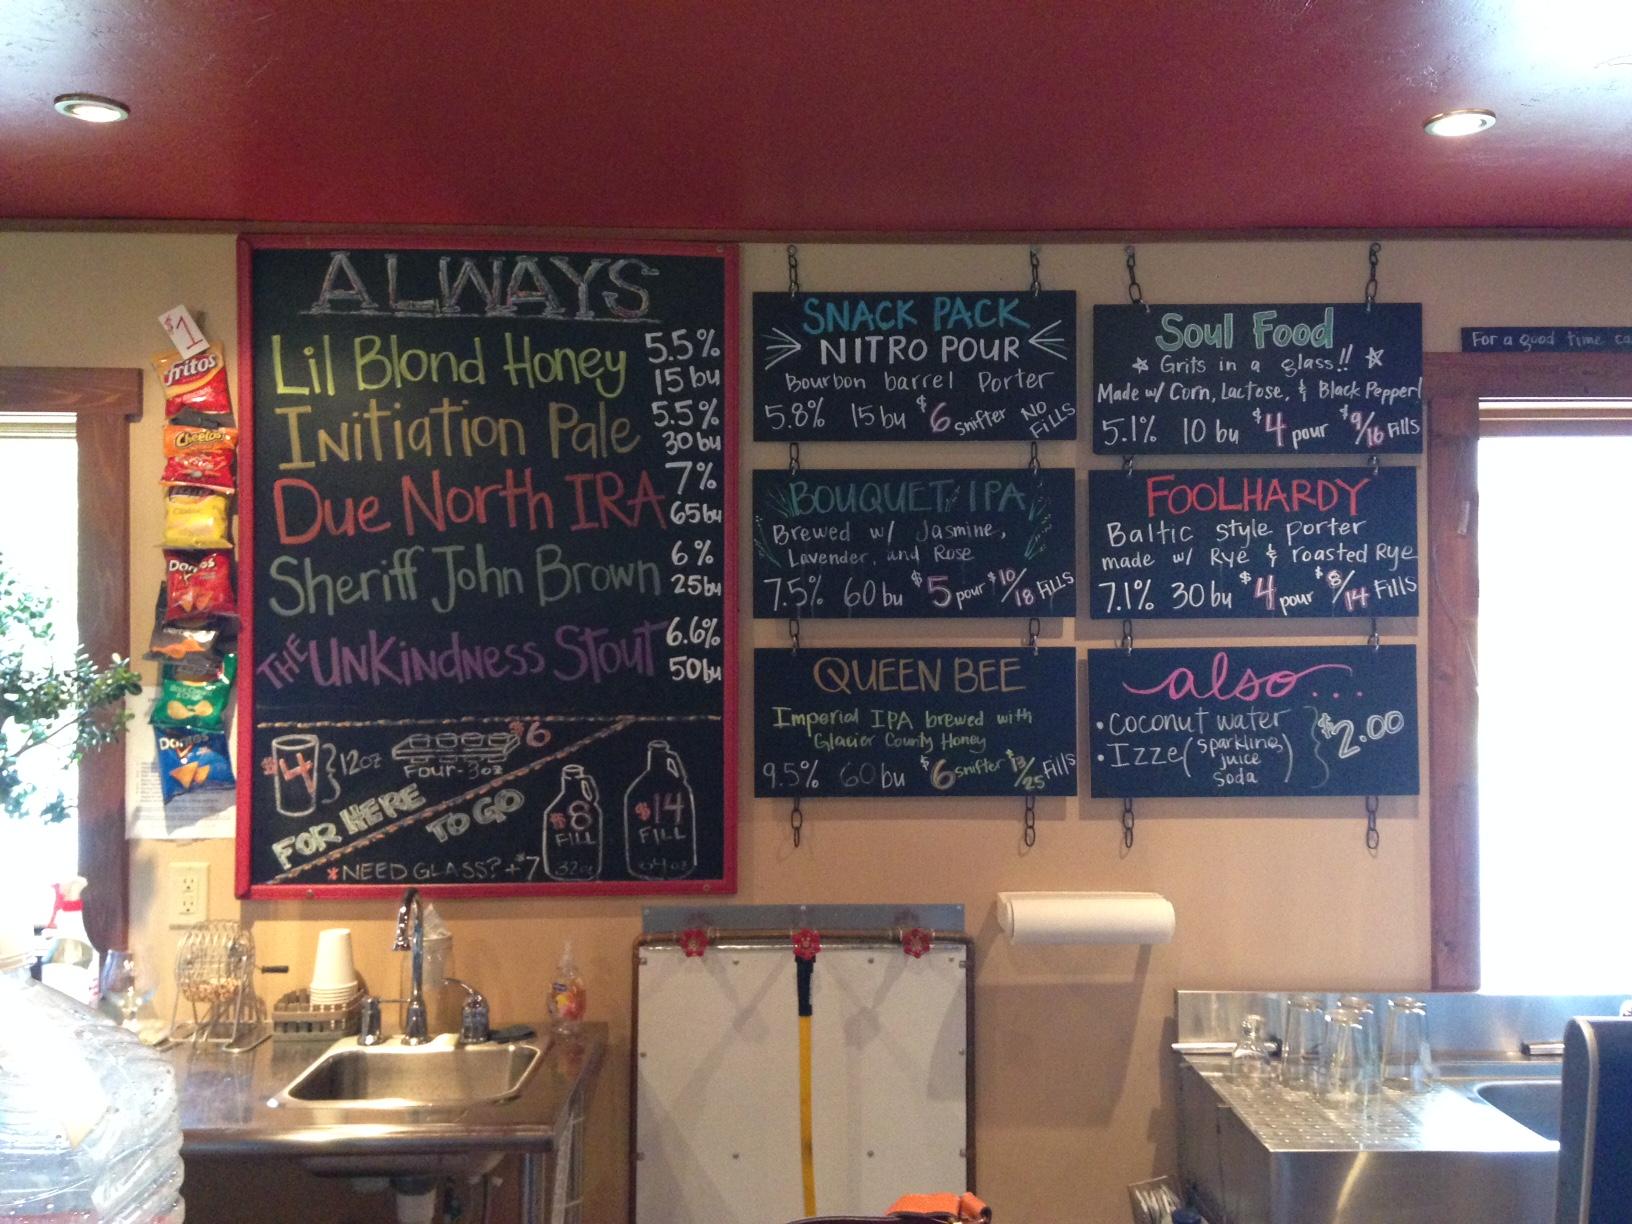 $1
fritos
Cheetos
Doritos
Doritos
ALWAYS
Lil Blond Honey 5.5% 15 bu
Initiation Pale 5.5% 30 bu
Due North IRA 7% 65 bu
Sheriff John Brown 6% 25 bu
The Unkindness Stout 6.6% 50 bu
$4 } 12oz
$6
Four-3oz
FOR HERE
TO GO
$8 FILL 32oz
$14 FILL 64oz
*NEED GLASS? +$7
SNACK PACK
NITRO POUR
Bourbon barrel Porter
5.8% 15 bu $6 snifter NO FILLS
BOUQUET IPA
Brewed w/ Jasmine,
Lavender, and Rose
7.5% 60 bu $5 pour $10/18 Fills
QUEEN BEE
Imperial IPA brewed with
Glacier County Honey
9.5% 60 bu $6 snifter $13/25 Fills
Soul Food
Grits in a glass!!
Made w/ Corn, Lactose, & Black Pepper!
5.1% 10 bu $4 pour $9/16 Fills
FOOLHARDY
Baltic style porter
made w/ Rye & roasted Rye
7.1% 30 bu $4 pour $8/14 Fills
also...
• Coconut water
• Izze (sparkling juice soda)
$2.00
For a good time ca